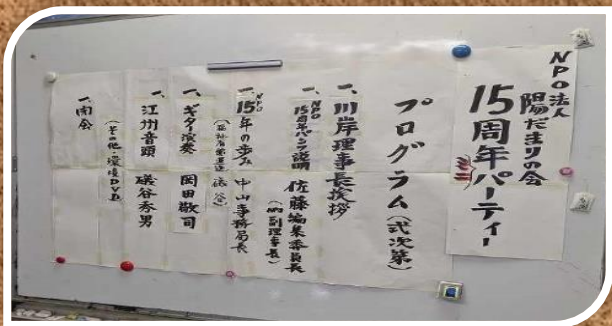 NPO法人
陽だまりの会
15周年パーティー
プログラム(式次第)
一、川岸理事長挨拶
一、NPO15周年パンフ説明 佐藤編集委員長
(副理事長)
一、NPO15年の歩み 中山事務局長
一、ギター演奏 岡田敬司
一、江州音頭 礒谷秀男
(その他・環境DVD)
一、閉会